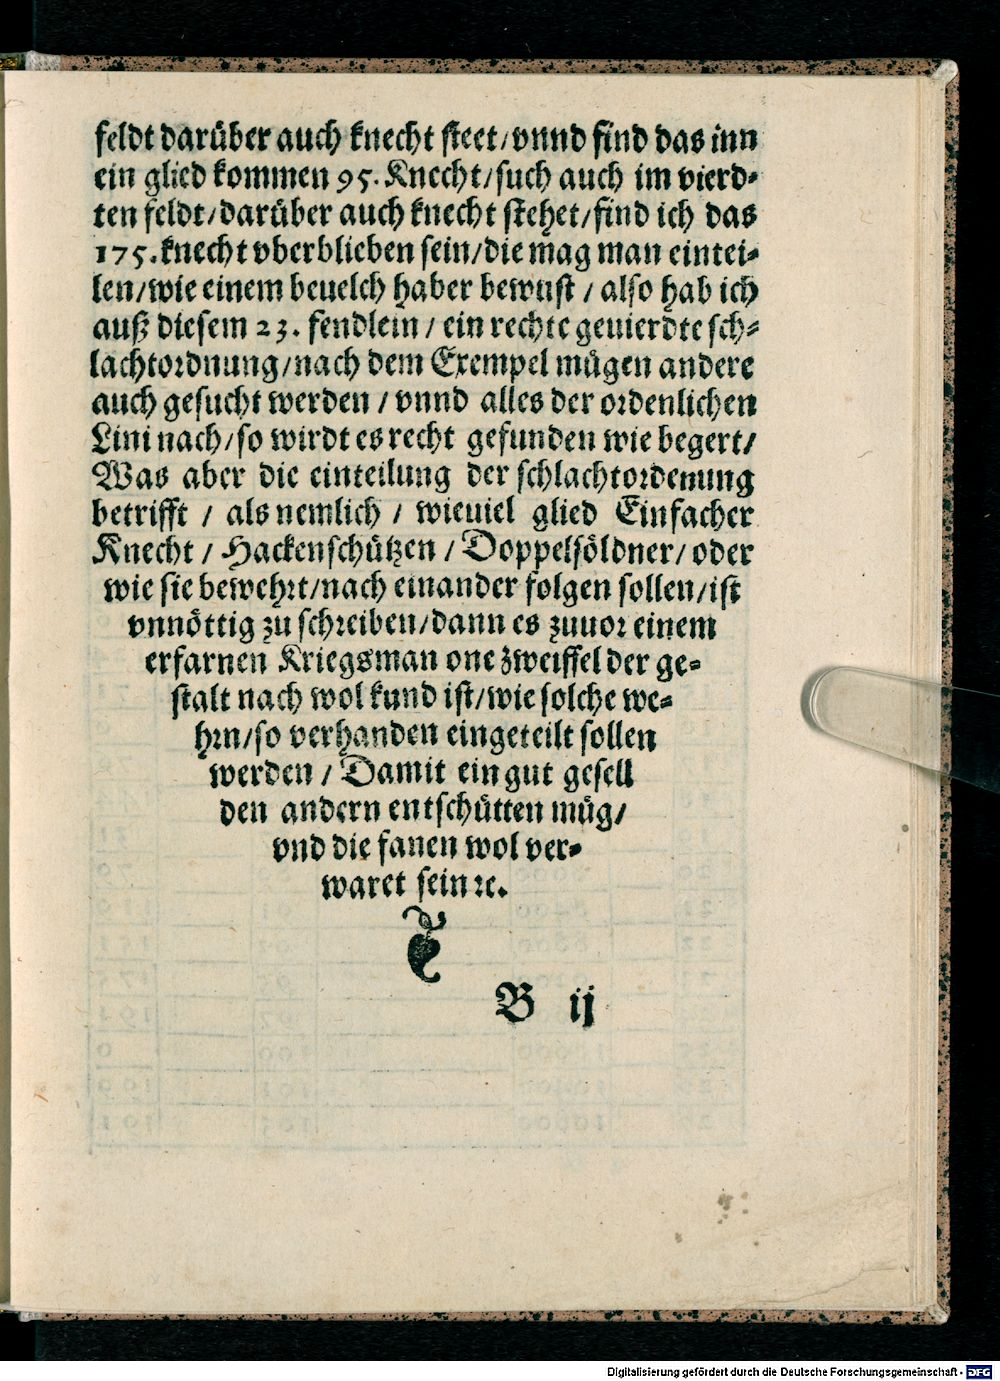 feldt darüber auch knecht steet/vnnd find das inn
ein glied kommen 95. Knecht/such auch im vierd-
ten feldt/darüber auch knecht stehet/find ich das
175.knecht vberblieben sein/die mag man eintei-
len/wie einem beuelch haber bewust / also hab ich
auß diesem 23. fendlein / ein rechte geuierdte sch-
lachtordnung/nach dem Exempel mügen andere
auch gesucht werden / vnnd alles der ordenlichen
Lini nach/so wirdt es recht gefunden wie begert/
Was aber die einteilung der schlachtordenung
betrifft / als nemlich / wieuiel glied Einfacher
Knecht / Hackenschützen / Doppelsöldner/ oder
wie sie bewehrt/nach einander folgen sollen/ist
vnnöttig zu schreiben/dann es zuuor einem
erfarnen Kriegsman one zweiffel der ge-
stalt nach wol kund ist/wie solche we-
hrn/so verhanden eingeteilt sollen
werden / Damit ein gut gesell
den andern entschütten müg/
vnd die fanen wol ver-
waret sein ꝛc.
B ij
Digitalisierung gefördert durch die Deutsche Forschungsgemeinschaft - DFG